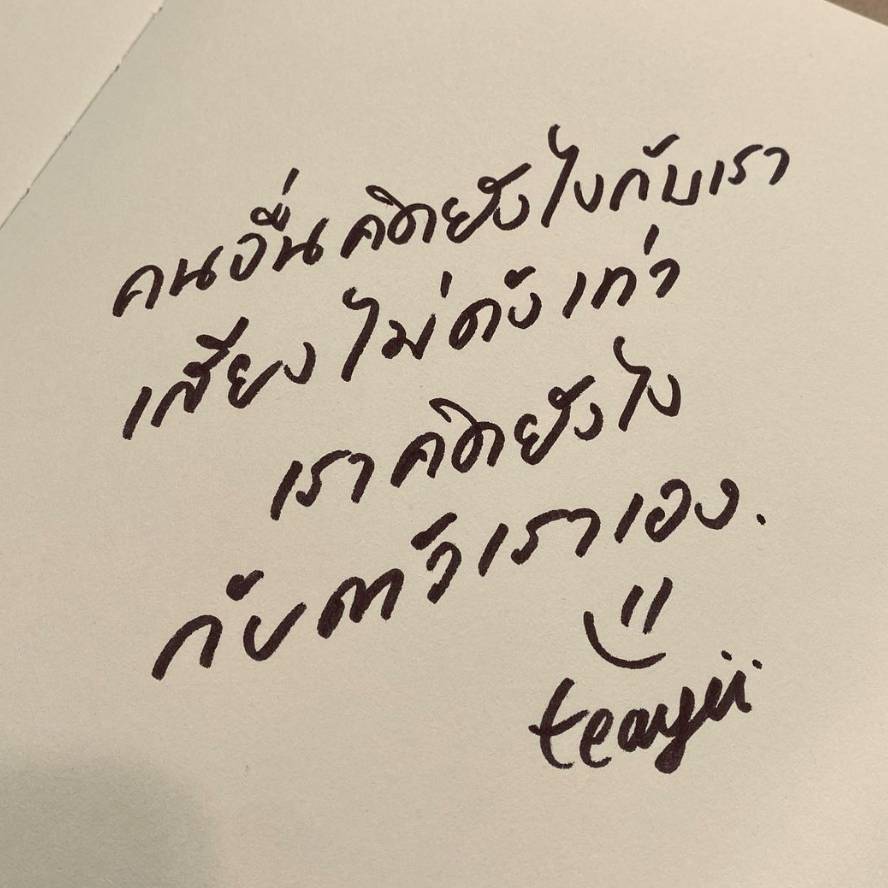 คนอื่นคิดยังไงกับเรา
เสียงไม่ดังเท่า
เราคิดยังไง
กับตัวเราเอง.
teayii